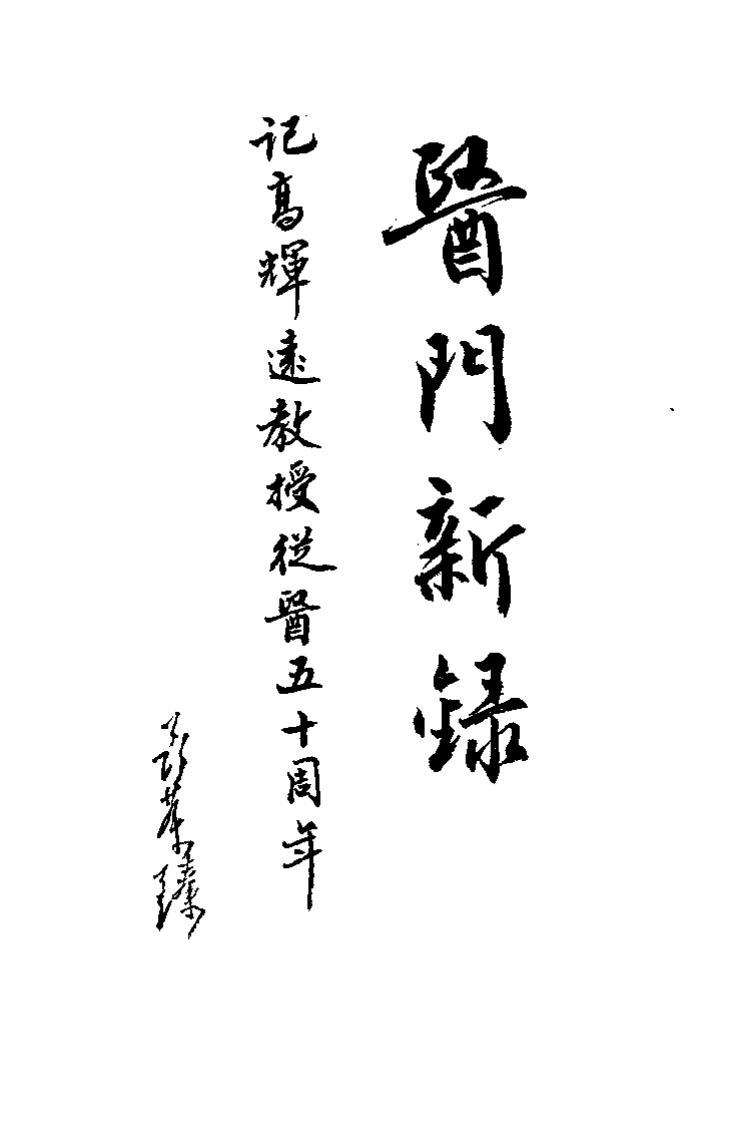 醫門新録
記高輝遠教授從醫五十周年